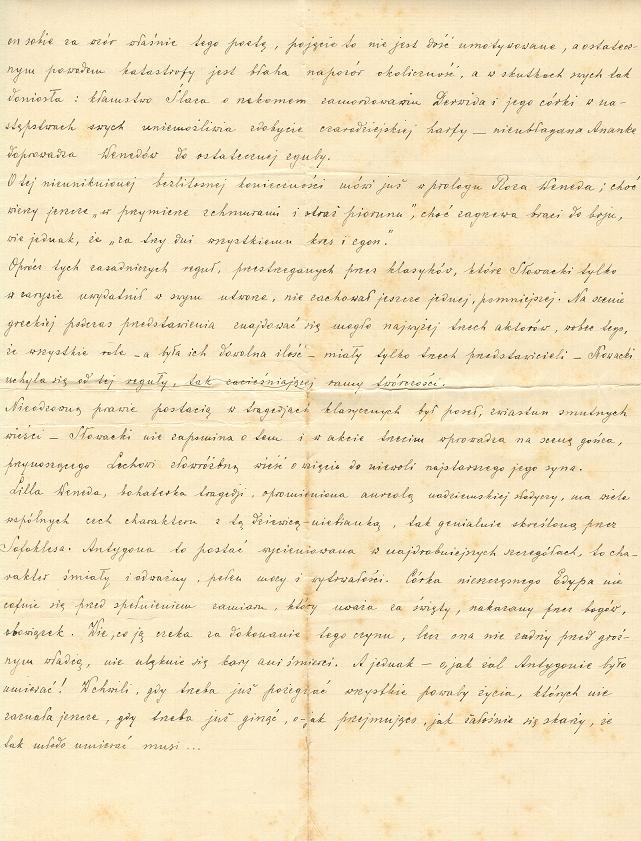 on sobie za wzór właśnie tego poetę, pojęcie to nie jest dość umotywowane, a ostatecz-
nym powodem katastrofy jest błaha napozór okoliczność, a w skutkach swych tak
doniosła: kłamstwo Ślaza o rzekomem zamordowaniu Derwida i jego córki w na-
stępstwach swych uniemożliwia zdobycie czarodziejskiej harfy – nieubłagana Ananke
doprowadza Wenedów do ostatecznej zguby.
O tej nieuniknionej bezlitosnej konieczności mówi już w prologu Roza Weneda; choć
wierzy jeszcze „w przymierze z chmurami i straż piorunu", choć zagrzewa braci do boju,
wie jednak, że „za trzy dni wszystkiemu kres i zgon."
Oprócz tych zasadniczych reguł, przestrzeganych przez klasyków, które Słowacki tylko
w zarysie uwydatnił w swym utworze, nie zachował jeszcze jednej, pomniejszej. Na scenie
greckiej podczas przedstawienia znajdować się mogło najwyżej trzech aktorów, wobec tego,
że wszystkie role – a była ich dowolna ilość – miały tylko trzech przedstawicieli – Słowacki
uchyla się od tej reguły, tak zacieśniającej ramy twórczości.
Nieodzowną prawie postacią w tragedjach klasycznych był poseł, zwiastun smutnych
wieści – Słowacki nie zapomina o tem i w akcie trzecim wprowadza na scenę gońca,
przynoszącego Lechowi złowróżbną wieść o wzięciu do niewoli najstarszego jego syna.
Lilla Weneda, bohaterka tragedji, opromieniona aureolą nadziemskiej słodyczy, ma wiele
wspólnych cech charakteru z tą dziewicą-niebianką, tak genialnie skreśloną przez
Sofoklesa. Antygona to postać wycieniowana w najdrobniejszych szczegółach, to cha-
rakter śmiały i odważny, pełen mocy i wytrwałości. Córka nieszczęsnego Edypa nie
cofnie się przed spełnieniem zamiaru, który uważa za święty, nakazany przez bogów,
obowiązek. Wie, co ją czeka za dokonanie tego czynu, lecz ona nie zadrży przed groź-
nym władcą, nie ulęknie się kary ani śmierci. A jednak – o, jak żal Antygonie było
umierać! W chwili, gdy trzeba już pożegnać wszystkie powaby życia, których nie
zaznała jeszcze, gdy trzeba już ginąć, o – jak przejmująco, jak żałośnie się skarży, że
tak młodo umierać musi ...